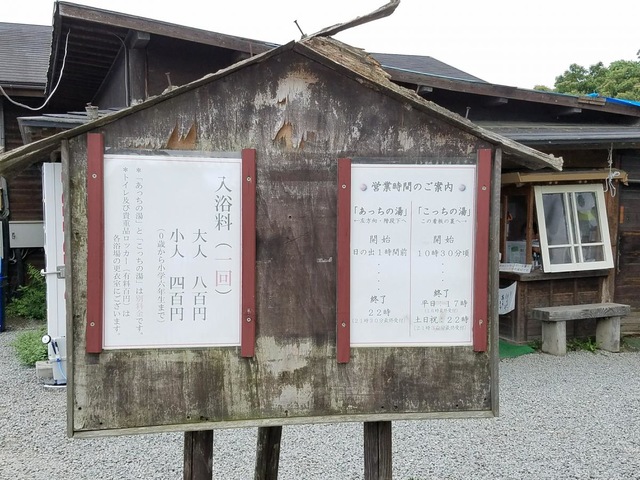 入浴料（一回）
大人　八百円
小人　四百円
（０歳から小学六年生まで）
＊「あっちの湯」と「こっちの湯」は別料金です。
＊トイレ及び貴重品ロッカー（有料百円）は
各浴場の更衣室にございます。
営業時間のご案内
「あっちの湯」
←左方向・階段下へ
開始
日の出１時間前
終了
２２時
「こっちの湯」
この看板の裏へ→
開始
１０時３０分頃
終了
平日…１７時
土日祝…２２時